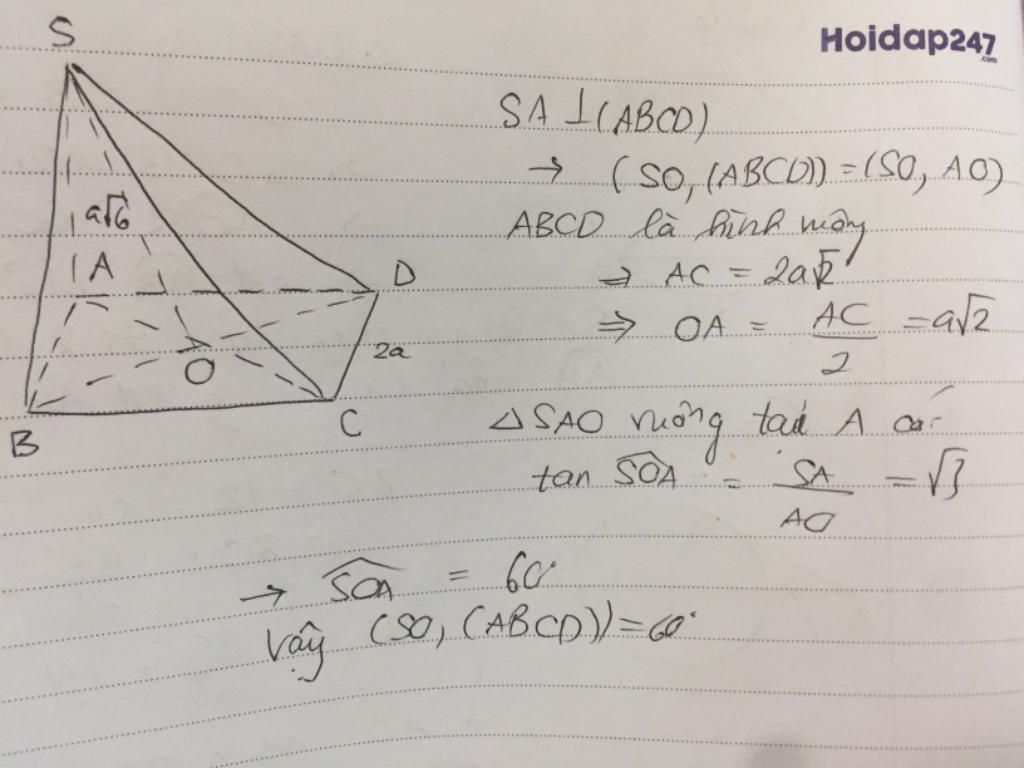 S
Hoidap247
.com
SA ⊥ (ABCD)
→ (SO, (ABCD)) = (SO, AO)
a√6
ABCD là hình vuông
A
D
⇒ AC = 2a√2
⇒ OA = AC/2 = a√2
2a
O
B
C
△SAO vuông tại A có
tan SOA = SA/AO = √3
→ SOA = 60°
Vậy (SO, (ABCD)) = 60°